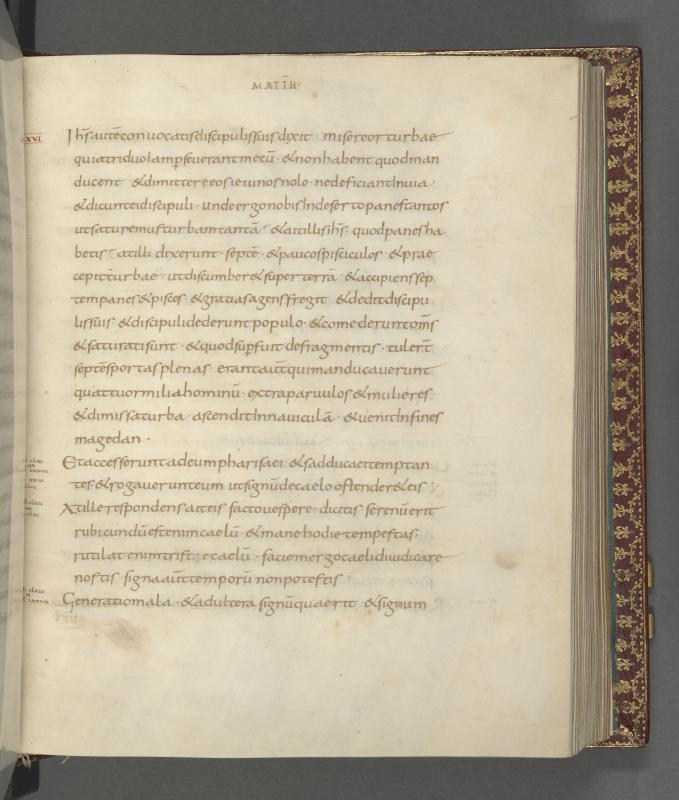 MATTH·
XVI
Ihs autē conuocatis discipulis suis dixit · misereor turbae
quia triduo iam perseuerant mecū · & non habent quod man
ducent · & dimittere eos ieiunos nolo · ne deficiant in uia ·
& dicunt ei discipuli · unde ergo nobis in deserto panes tantos
ut saturemus turbam tantā · & ait illis ihs · quod panes ha
betis · at illi dixerunt · septē · & paucos pisciculos · & prae
cepit turbae · ut discumber& super terrā · & accipiens sep
tem panes & pisces · & gratias agens fregit · & dedit discipu
lis suis · & discipuli dederunt populo · & comederunt omīs
& saturati sunt · & quod sup̄fuit de fragmentis · tulerт̄
septē sportas plenas · erant aut̄ qui manducauerunt
quattuor milia hominū · extra paruulos & mulieres ·
& dimissa turba · ascendit in nauiculā · & uenit in fines
magedan ·
Et accesserunt ad eum pharisaei · & sadducaei temptan
tes · & rogauerunt eum ut signū de caelo ostender& eis ·
At ille respondens ait eis · facto uespere · dicitis serenū erit
rubicundū est enim caelū · & mane hodie tempestas ·
rutilat enim triste caelū · faciem ergo caeli diiudicare
nostis · signa aut̄ temporū non potestis ·
Generatio mala · & adultera signū quaerit · & signum